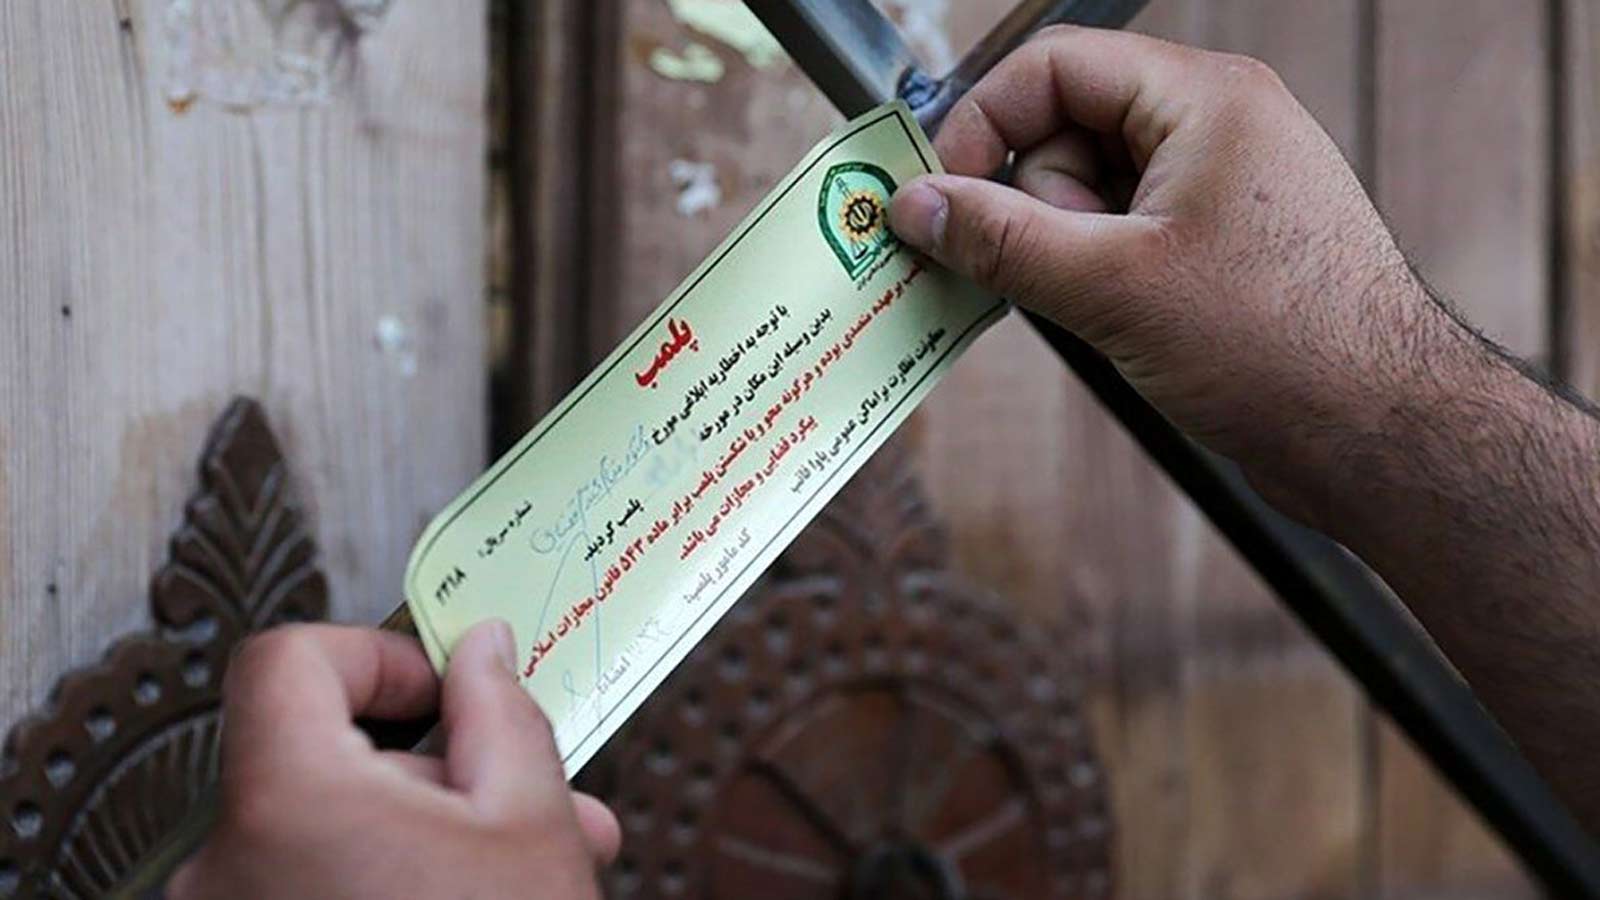 پلمب
با توجه به اخطاریه ابلاغی مورخ
بدین وسیله این مکان در مورخه پلمب گردید.
بر عهده متصدی بوده و هرگونه محو و یا شکستن پلمب برابر ماده ۵۴۳ قانون مجازات اسلامی
پیگرد قضایی و مجازات می باشد.
معاونت نظارت بر اماکن عمومی پاوا فاتب
کد مامور پلمپ:
امضاء
شماره سریال: